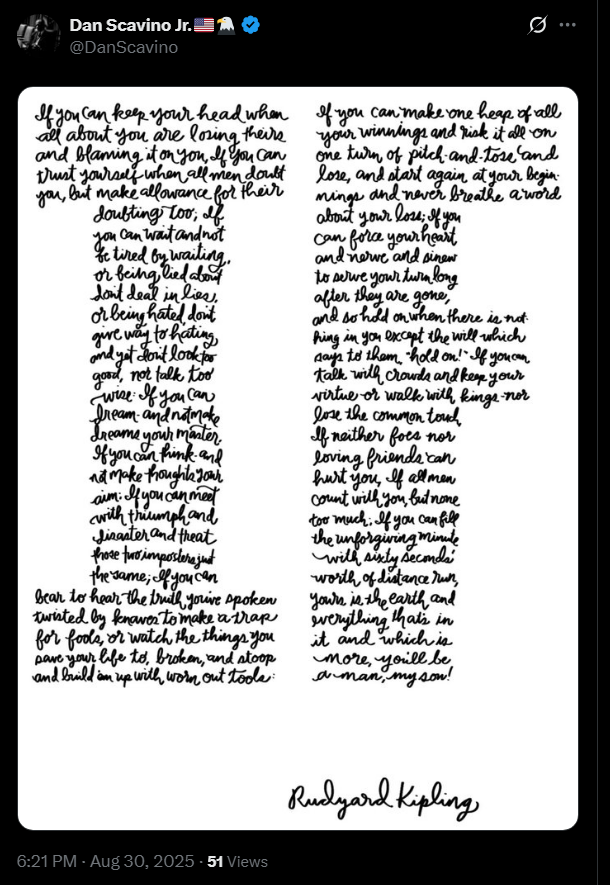 Dan Scavino Jr.🇺🇸🦅
@DanScavino
If you can keep your head when
all about you are losing theirs
and blaming it on you, If you can
trust yourself when all men doubt
you, but make allowance for their
doubting too; If
you can wait and not
be tired by waiting,
or being lied about
don't deal in lies,
or being hated don't
give way to hating
and yet don't look too
good, nor talk too
wise: If you can
dream-and not make
dreams your master,
If you can think-and
not make thoughts your
aim; If you can meet
with triumph and
disaster and treat
those two imposters just
the same; If you can
bear to hear the truth you've spoken
twisted by knaves to make a trap
for fools, or watch the things you
gave your life to, broken, and stoop
and build 'em up with worn out tools:
If you can make one heap of all
your winnings and risk it all on
one turn of pitch-and-toss and
lose, and start again at your begin-
nings and never breathe a word
about your loss; If you
can force your heart
and nerve and sinew
to serve your turn long
after they are gone,
and so hold on when there is not-
hing in you except the will which
says to them "hold on!" If you can
talk with crowds and keep your
virtue or walk with kings-nor
lose the common touch,
If neither foes nor
loving friends can
hurt you, If all men
count with you, but none
too much; If you can fill
the unforgiving minute
with sixty seconds'
worth of distance run,
yours is the earth and
everything that's in
it and which is
more, you'll be
a man, my son!
Rudyard Kipling
6:21 PM · Aug 30, 2025 · 51 Views